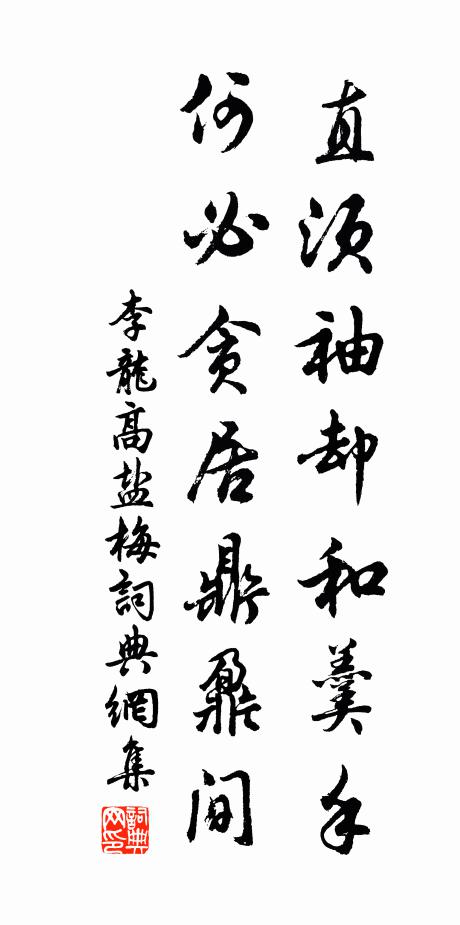 直須袖却和羹手
何必貪居鼎鼐間
李龍高盐梅詞典網集
詞典网印